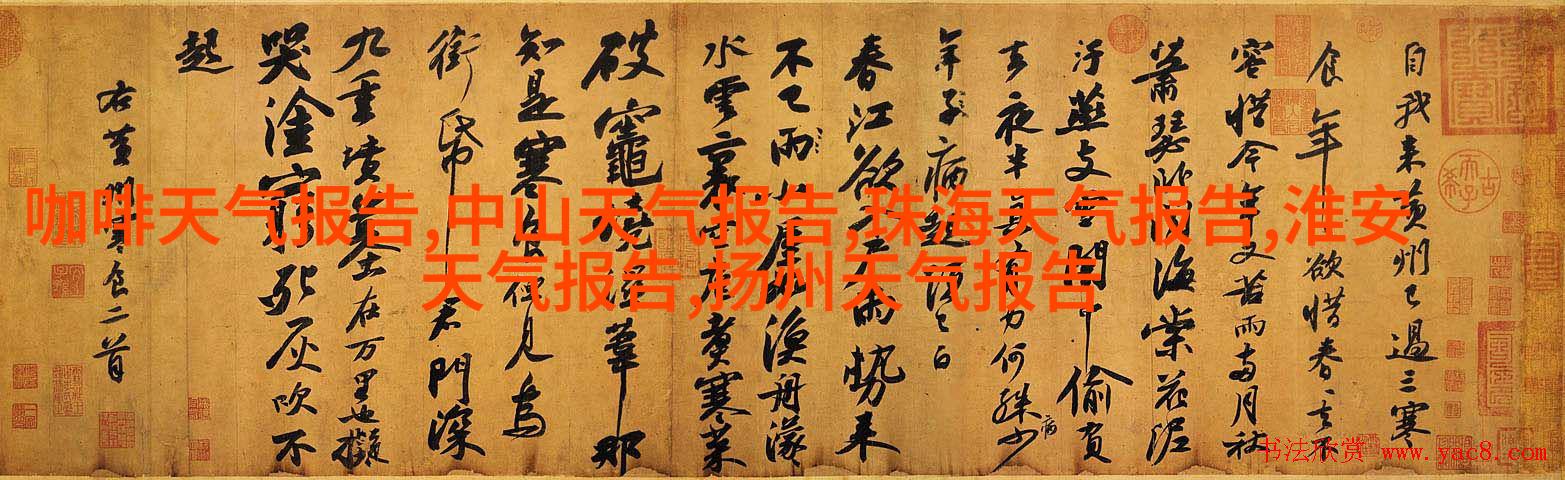 自我来黄州已過三寒
食年年欲惜春春去不
容惜今年又苦雨兩月秋
蕭瑟卧聞海棠花泥
汙燕支雪闇中偷負
去夜半真有力何殊少
年子病起須已白
春江欲入戶雨勢来
不已雨小屋如漁舟濛
水雲裏空庖煮寒菜
破竈燒濕葦那
知是寒食但見烏
銜帋君門深
九重墳墓在万里也擬
哭塗窮死灰吹不
起
右黄州寒食二首
咖啡天气报告,中山天气报告,珠海天气报告,淮安
天气报告,扬州天气报告
书法欣赏 www.yac8.com